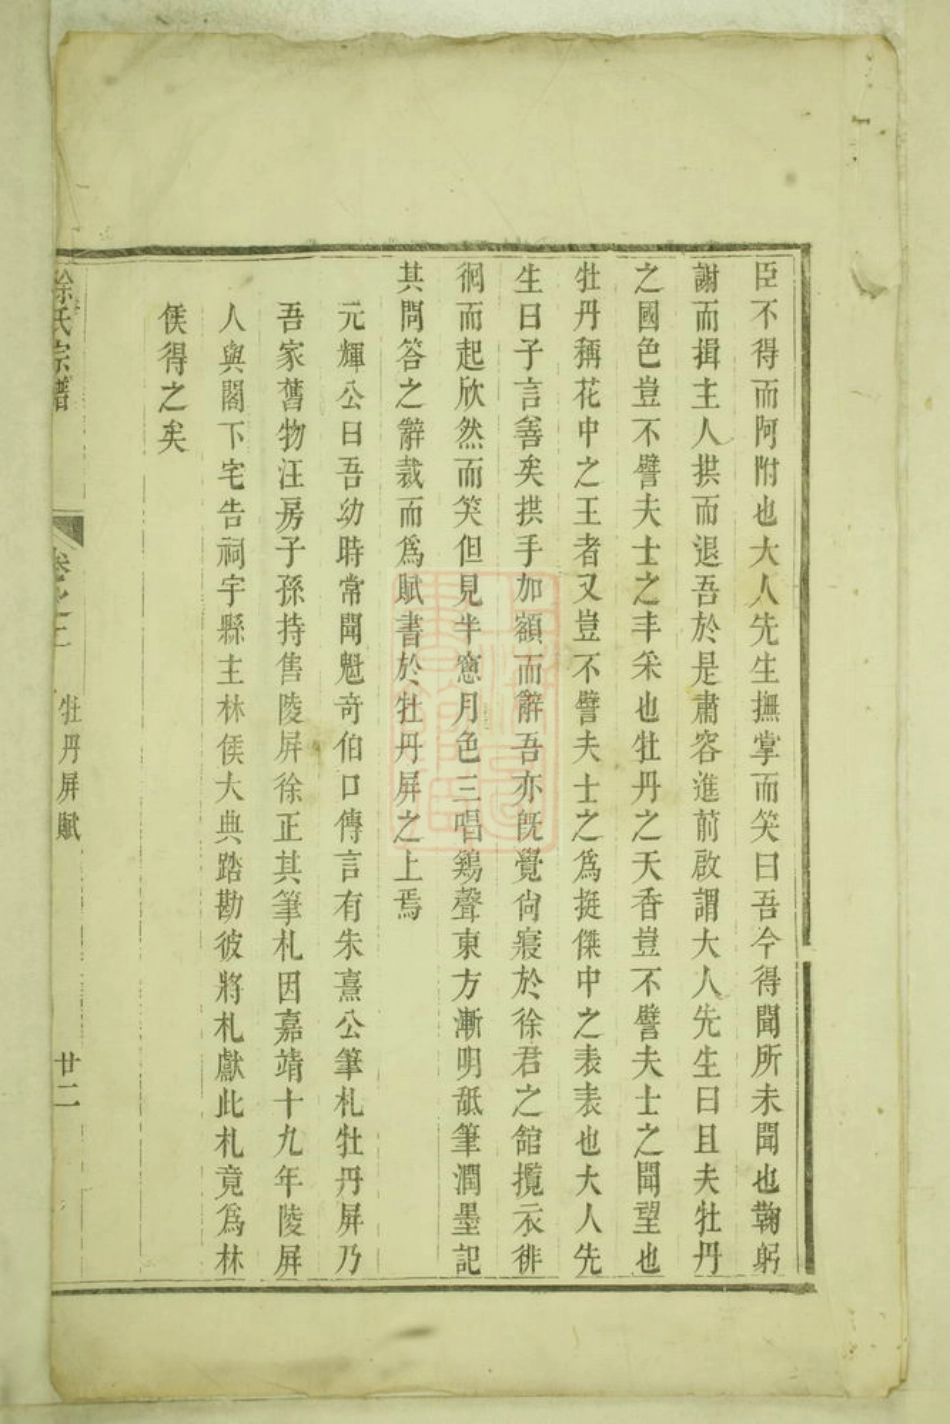 臣不得而阿附也大人先生撫掌而笑曰吾今得聞所未聞也鞠躬
謝而揖主人拱而退吾於是肅容進前啟謂大人先生曰且夫牡丹
之國色豈不譬夫士之丰采也牡丹之天香豈不譬夫士之聞望也
牡丹稱花中之王者又豈不譬夫士之爲挺傑中之表表也大人先
生曰子言善矣拱手加額而辭吾亦旣覺尙寢於徐君之舘攬衣徘
徊而起欣然而笑但見半窻月色三唱鷄聲東方漸明舐筆潤墨記
其問答之辭裁而爲賦書於牡丹屏之上焉
元輝公曰吾幼時常聞魁奇伯口傳言有朱熹公筆札牡丹屏乃
吾家舊物汪房子孫持售陵屏徐正其筆札因嘉靖十九年陵屏
人與閣下宅告祠宇縣主林侯大典踏勘彼將札獻此札竟爲林
侯得之矣
徐氏宗譜
卷之二
牡丹屏賦
廿二